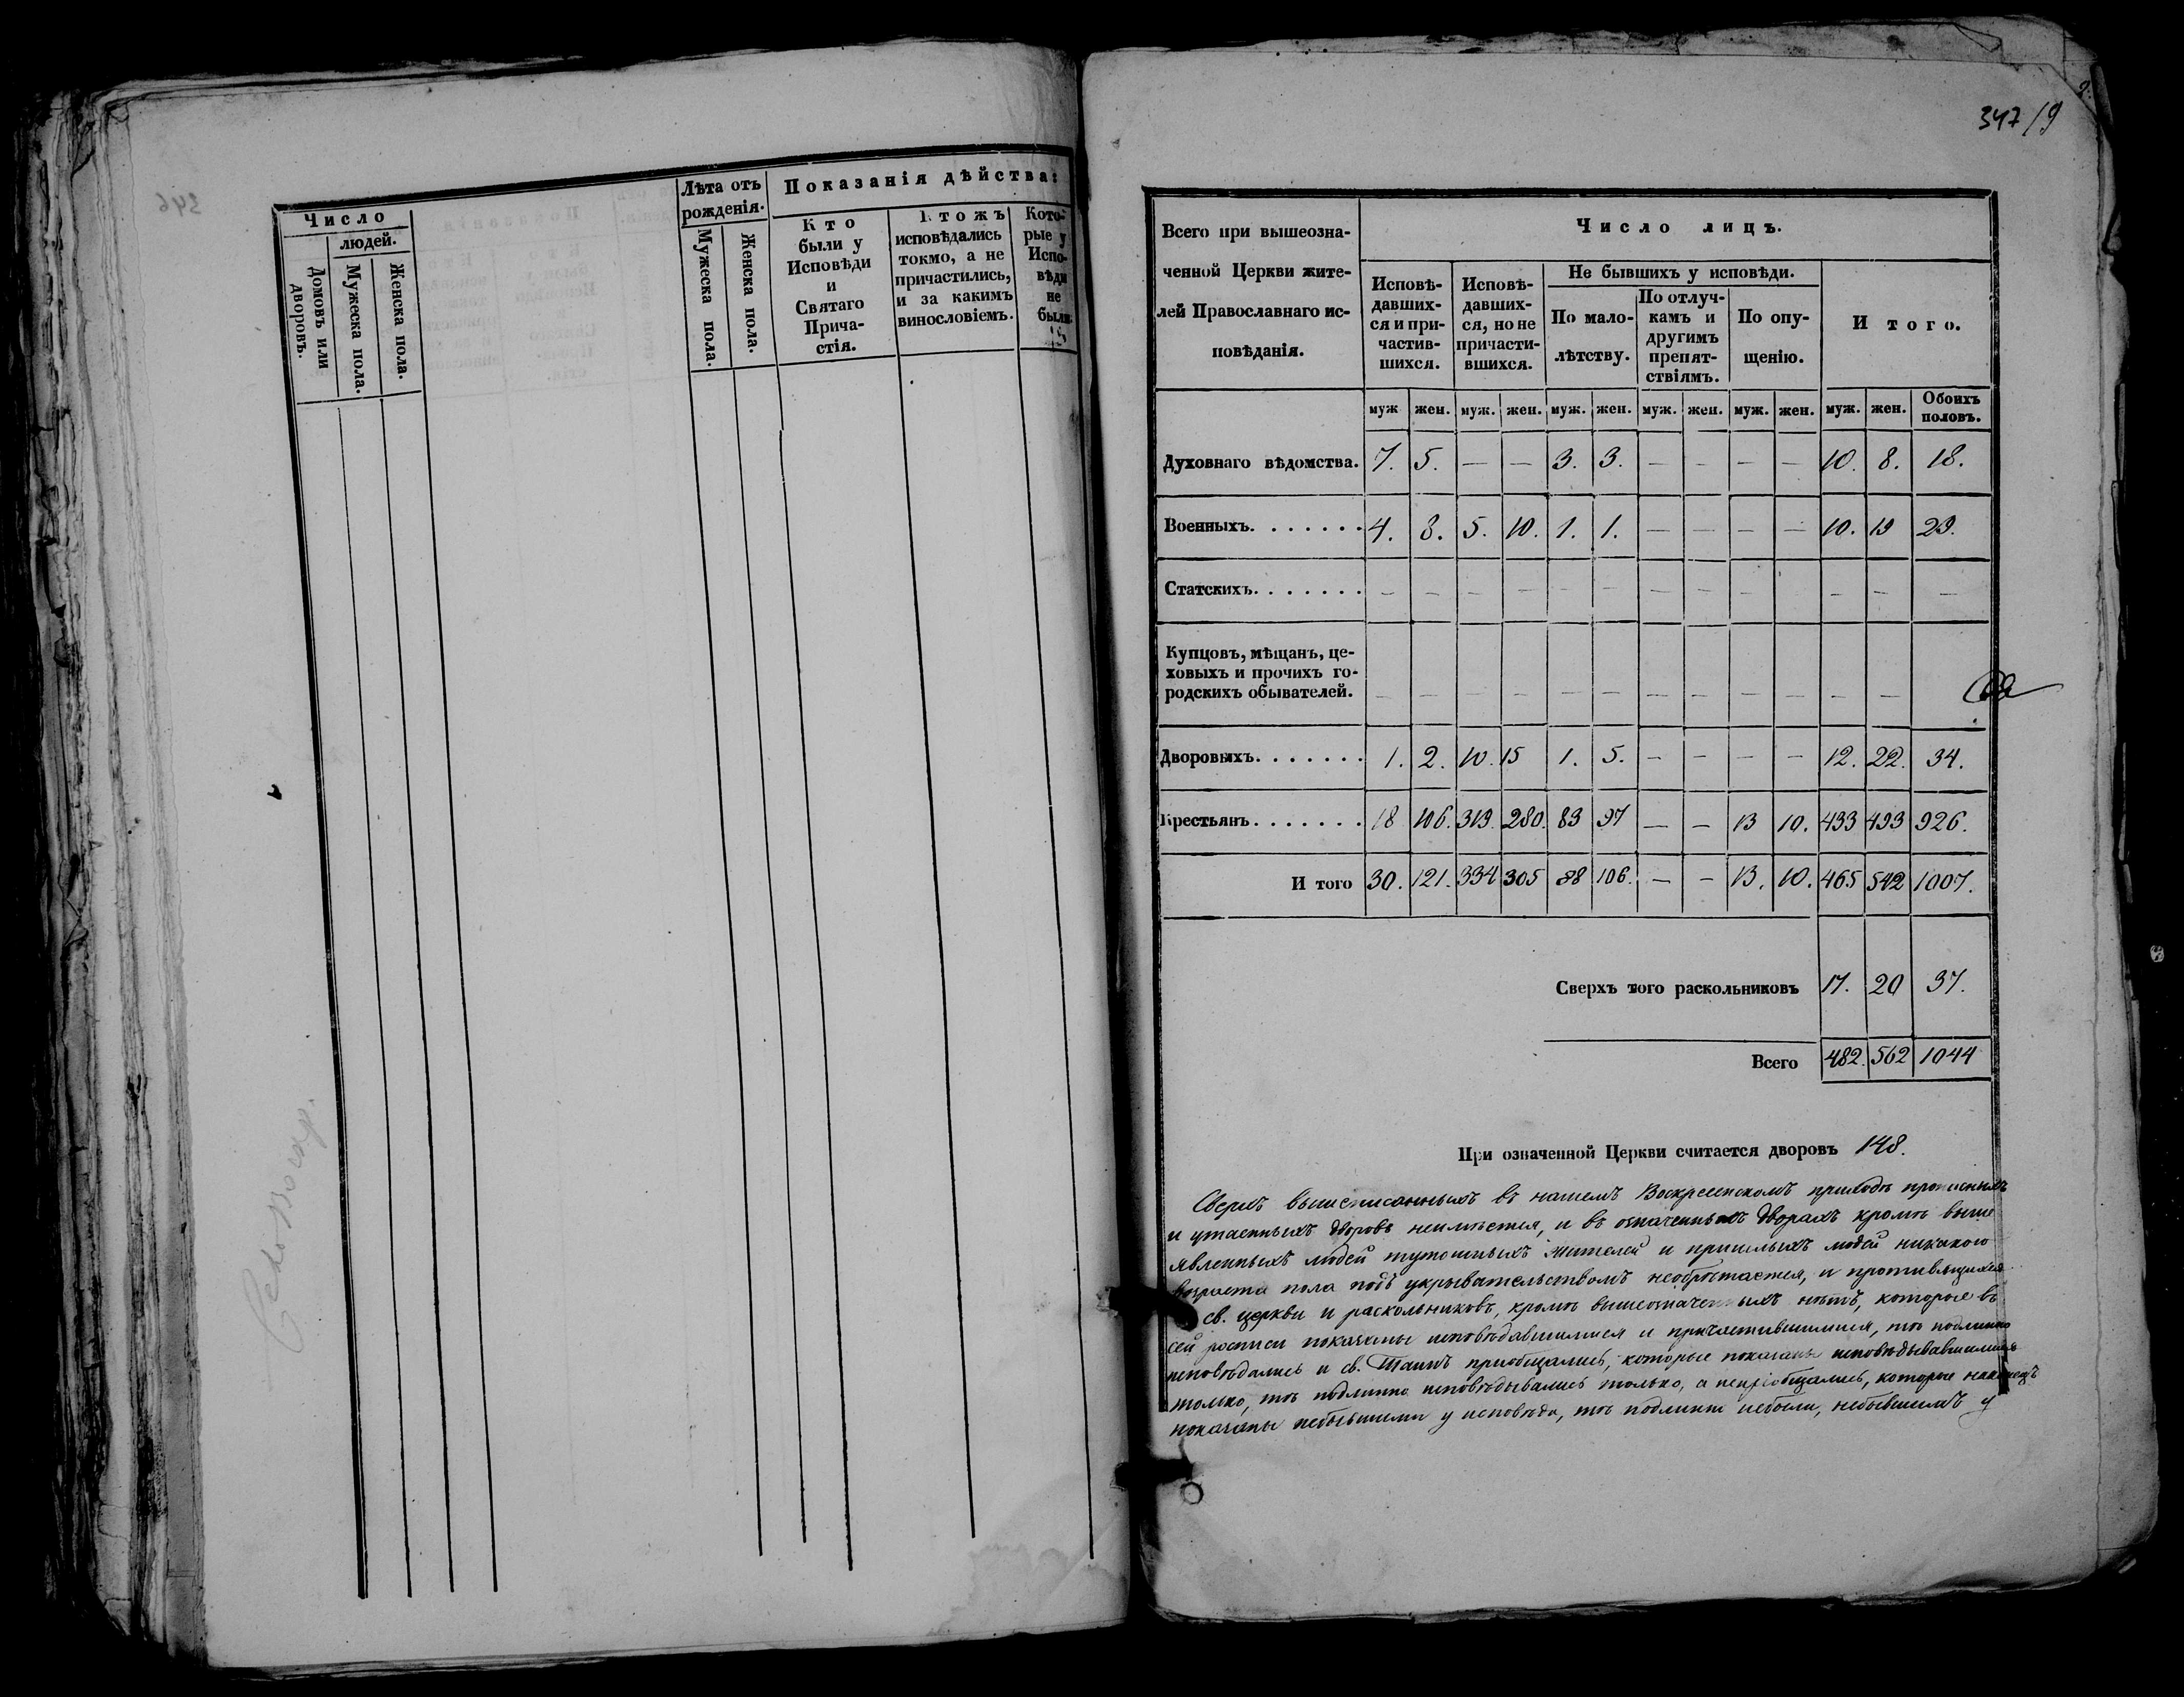 Число
людей.
Домовъ или дворовъ.
Мужеска пола.
Женска пола.
Лѣта отъ рожденія.
Мужеска пола.
Женска пола.
Показанія дѣйства:
Кто
были у
Исповѣди
и
Святаго
Прича-
стія.
Ктожъ
исповѣдались
токмо, а не
причастились,
и за какимъ
винословіемъ.
Кото-
рые у
Испо-
вѣди
не
были.
346
347/9
Всего при вышеозна-
ченной Церкви жите-
лей Православнаго ис-
повѣданія.
Число лицъ.
Исповѣ-
давших-
ся и при-
частив-
шихся.
Исповѣ-
давших-
ся, но не
причасти-
вшихся.
Не бывшихъ у исповѣди.
По мало-
лѣтству.
По отлуч-
камъ и
другимъ
препят-
ствіямъ.
По опу-
щенію.
И того.
муж жен. муж. жен. муж. жен. муж. жен. муж. жен. муж. жен. Обоихъ половъ.
Духовнаго вѣдомства. 7. 5. — — 3. 3. — — — — 10. 8. 18.
Военныхъ. . . . . . . 4. 8. 5. 10. 1. 1. — — — — 10. 19 29.
Статскихъ. . . . . . . — — — — — — — — — — — — —
Купцовъ, мѣщанъ, це-
ховыхъ и прочихъ го-
родскихъ обывателей. — — — — — — — — — — — —
Дворовыхъ. . . . . . . 1. 2. 10. 15 1. 5. — — — — 12. 22. 34.
Крестьянъ. . . . . . . 18 106. 319. 280. 83 97 — — 13 10. 433 493 926.
И того 30. 121. 334 305 88 106. — — 13. 10. 465 542 1007.
Сверхъ того раскольниковъ 17. 20 37.
Всего 482. 562 1044
При означенной Церкви считается дворовъ 148.
Сверхъ вышеписанныхъ въ нашемъ Воскресенскомъ приходѣ прописныхъ
и утаенныхъ дворовъ неимѣется, и въ означенныхъ дворахъ кромѣ выше
явленныхъ людей тутошныхъ жителей и пришлыхъ людей никакого
возраста пола подъ укрывательствомъ необрѣтается, и противящихся
св. церкви и раскольниковъ, кромѣ вышеозначенныхъ нѣтъ, которые въ
сей росписи показаны исповѣдавшимися и причастившимися, тѣ подлинно
исповѣдались и св. Таинъ приобщались, которые показаны исповѣдывавшимися
только, тѣ подлинно исповѣдывались только, а непріобщались, которые наконецъ
показаны небывшими у исповѣди, тѣ подлинно небыли, небывшихъ у